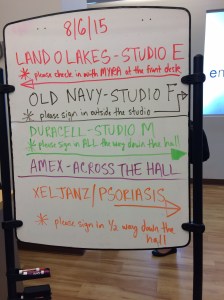 8/6/15
LAND O LAKES - STUDIO E
* please check in with MYRA at the front desk
OLD NAVY - STUDIO F
* please sign in outside the studio
DURACELL - STUDIO M
* please sign in ALL the way down the hall
AMEX - ACROSS THE HALL
XELJANZ/PSORIASIS
* please sign in 1/2 way down the
hall
en